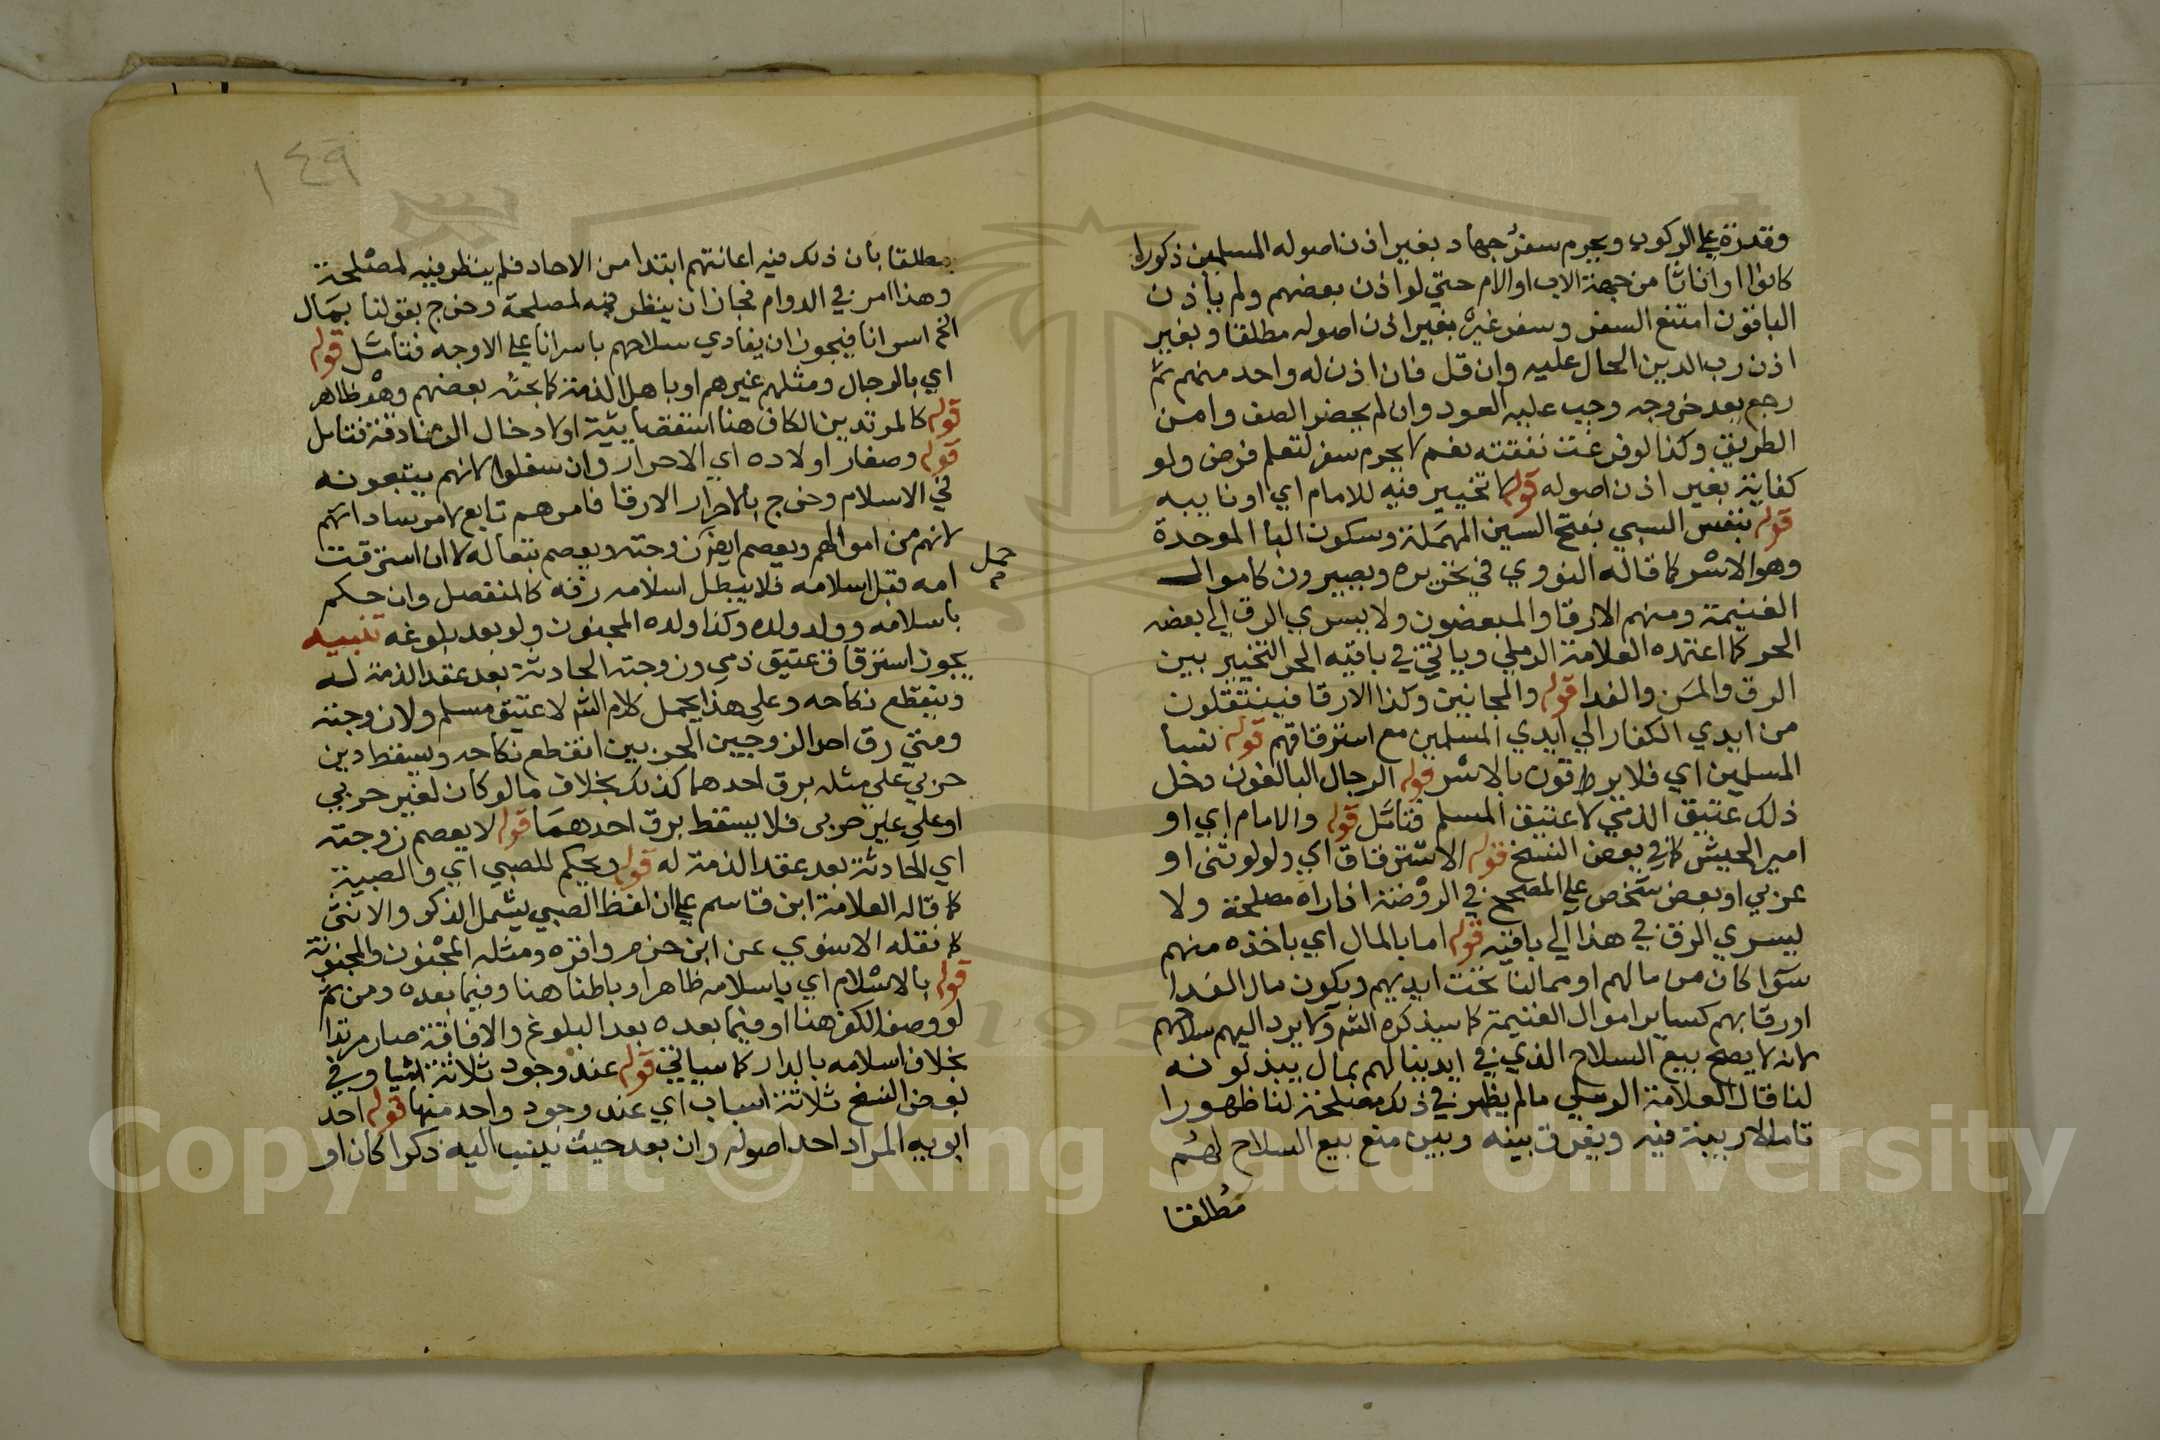 وقدرة علي الركوب ويحرم سفر جهاد بغير اذن اصوله المسلمين ذكورا
كانوا او اناثا من جهة الاب او الام حتي لو اذن بعضهم ولم ياذن
الباقون امتنع السفر وسفر غيره بغير اذن اصوله مطلقا وبغير
اذن رب الدين الحال عليه وان قل فان اذن له واحد منهم ثم
رجع بعد خروجه وجب عليه العود وان لم يحضر الصف وامن
الطريق وكذا لو فرغت نفقته نعم لا يحرم سفر لتعلم فرض ولو
كفاية بغير اذن اصوله قوله لا تخيير فيه للامام اي او نايبه
قوله بنفس السبي بفتح السين المهملة وسكون البا الموحدة
وهو الاسر كما قاله النووي في تحريره ويصيرون كاموال
الغنيمة ومنهم الارقا والمبعضون ولا يسري الرق الي بعضه
الحر كما اعتمده العلامة الرملي وياتي في باقيه الحر التخيير بين
الرق والمن والفدا قوله والمجانين وكذا الارقا فينتقلون
من ايدي الكفار الي ايدي المسلمين مع استرقاقهم قوله نسا
المسلمين اي فلا يرقون بالاسر قوله الرجال البالغون دخل
ذلك عتيق الذمي لا عتيق المسلم فتامل قوله والامام اي او
امير الجيش كما في بعض النسخ قوله الاسترقاق اي ولو لوثني او
عربي او بعض شخص علي المصحح في الروضة اذا راه مصلحة ولا
يسري الرق في هذا الي باقيه قوله اما بالمال اي ياخذه منهم
سوا كان من مالهم او من مالنا تحت ايديهم ويكون مال الفدا
او رقابهم كساير اموال الغنيمة كما سيذكره الش ولا يرد اليهم سلاحهم
لانه لا يصح بيع السلاح الذي في ايدينا لهم بمال يبذلونه
لنا قال العلامة الرملي ما لم يظهر في ذلك مصلحة لنا ظهورا
تاما لا ريبة فيه ويفرق بينه وبين منع بيع السلاح لهم
مطلقا
١٤٩
مطلقا بان ذلك فيه اعانتهم ابتدا من الاحاد فلم ينظر فيه لمصلحة
وهذا امر في الدوام فجاز ان ينظر فيه لمصلحة وخرج بقولنا بمال
الخ اسرانا فيجوز ان يفادي سلاحهم باسرانا علي الاوجه فتامل قوله
اي بالرجال ومثلهم غيرهم او باهل الذمة كما بحثه بعضهم وهو ظاهر
قوله كالمرتدين الكاف هنا استقصايية او لادخال الزنادقة فتامل
قوله وصغار اولاده اي الاحرار وان سفلوا لانهم يتبعونه
في الاسلام وخرج بالاحرار الارقا فامرهم تابع لامر ساداتهم
لانهم من اموالهم ويعصم ايضا زوجته ويعصم تبعا له لا ان استرقت
حمل
امه قبل اسلامه فلا يبطل اسلامه رقه كالمنفصل وان حكم
باسلامه وولد ولده وكذا ولده المجنون ولو بعد بلوغه تنبيه
يجوز استرقاق عتيق ذمي وزوجته الحادثة بعد عقد الذمة له
وينقطع نكاحه وعلي هذا يحمل كلام الش لا عتيق مسلم ولا زوجته
ومتي رق احد الزوجين الحربيين انقطع نكاحه ويسقط دين
حربي علي مثله برق احدهما كذلك بخلاف ما لو كان لغير حربي
او علي غير حربي فلا يسقط برق احدهما قوله لا يعصم زوجته
اي الحادثة بعد عقد الذمة له قوله ويحكم للصبي اي والصبية
كما قاله العلامة ابن قاسم علي ان لفظ الصبي يشمل الذكر والانثي
كما نقله الاسنوي عن ابن حزم واقره ومثله المجنون والمجنونة
قوله بالاسلام اي باسلامه ظاهرا وباطنا هنا وفيما بعده ومن ثم
لو وصف الكفر هنا او فيما بعده بعد البلوغ والافاقة صار مرتدا
بخلاف اسلامه بالدار كما سياتي قوله عند وجود ثلاثة اشيا وفي
بعض النسخ ثلاثة اسباب اي عند وجود واحد منها قوله احد
ابويه المراد احد اصوله وان بعد حيث ينسب اليه ذكرا كان او
Copyright © King Saud University
1957